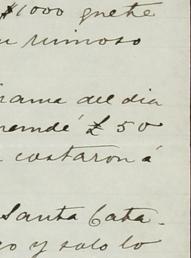 $1000 gnethe
u ruinoso
rama del dia
remdé £50
costaron á
Santa Cata-
o y solo lo